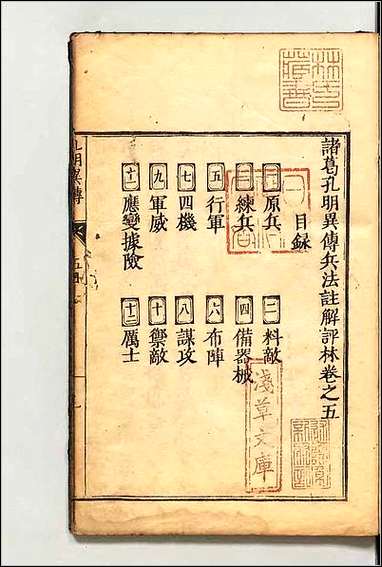 諸葛孔明異傳兵法註解評林卷之五
目錄
一 原兵 二 料敵
三 練兵 四 備器械
五 行軍 六 布陣
七 四機 八 謀攻
九 軍威 十 禦敵
十一 應變據險 十二 厲士
孔明異傳
淺草文庫